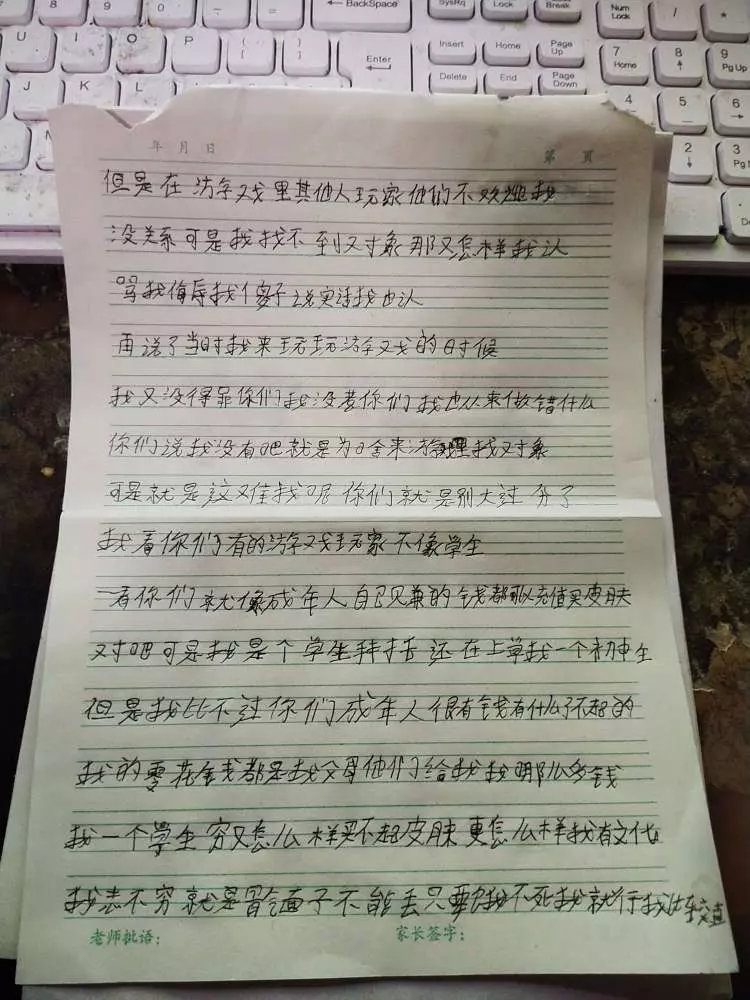 BackSpace
SysRq
Lock
Break
Num
Lock
/
*
U
I
O
P
{
}
Enter
Insert
Home
Page
Up
7
Home
8
9
Pg Up
J
K
L
Delete
End
Page
Down
4
5
6
N
M
2
3
Pg
年 月 日
第 页
但是在游字戏里其他人玩家他们不欢迎我
没关系可是我找不到对象那又怎样我认
骂我侮辱我傻子说实话我也认
再说了当时我来玩玩游字戏的时候
我又没得罪你们我没惹你们我也从来做错什么
你们说我没有吧就是为啥来游里找对象
可是就是这难我呢你们就是别太过分了
我看你们有的游字戏玩家不像学生
一看你们就像成年人自己兼的钱都可以充值买皮肤
对吧可是我是个学生我还在上学我一个初中生
但是我比不过你们成年人很有钱有什么了不起的
我的零花钱都是我父母他们给我我那么多钱
我一个学生穷又怎么样买不起皮肤更怎么样我有文化
我志不穷就是骨气面子不能丢只要我不死我就行我比较直
老师批语：
家长签字：